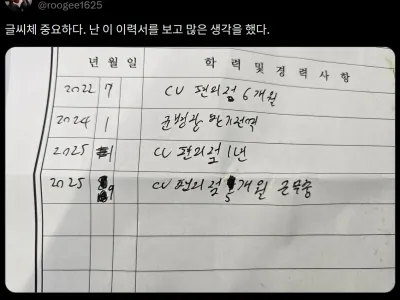 @roogee1625
글씨체 중요하다. 난 이 이력서를 보고 많은 생각을 했다.
년 월 일 학 력 및 경 력 사 항
2022 7 CU 편의점 6개월
2024 1 군병관 만기전역
2025 1 CU 편의점 1년
2025 9 CU 편의점 5개월 근무중